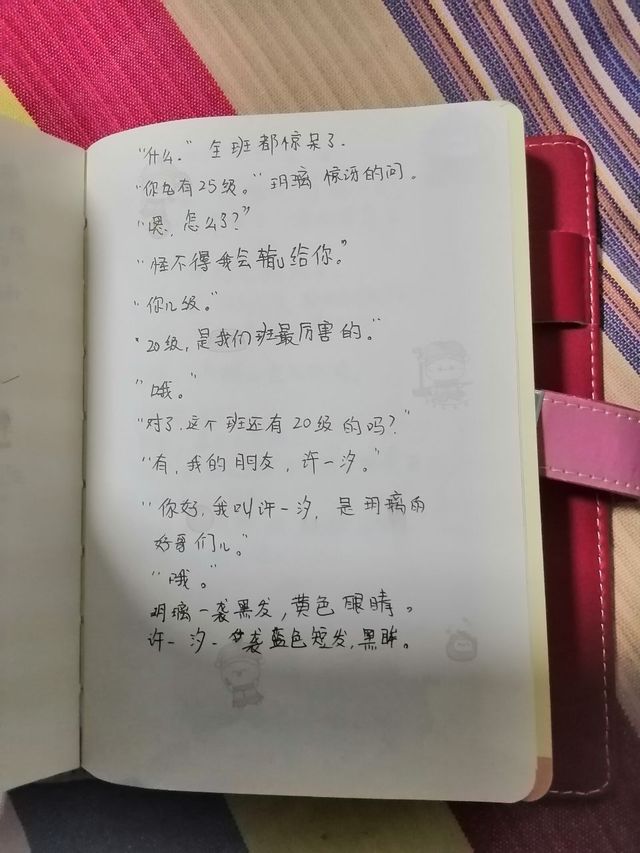 "什么。" 全班都惊呆了.
"你有25级。"玥璃 惊讶的问。
"嗯,怎么了?"
"怪不得我会输给你。"
"你几级。"
"20级,是我们班最厉害的。"
"哦。"
"对了,这个班还有20级的吗?"
"有,我的朋友,许一汐。"
"你好,我叫许一汐,是玥璃的
好哥们儿。"
"哦。"
玥璃一袭黑发,黄色眼睛。
许一汐一袭蓝色短发,黑眸。